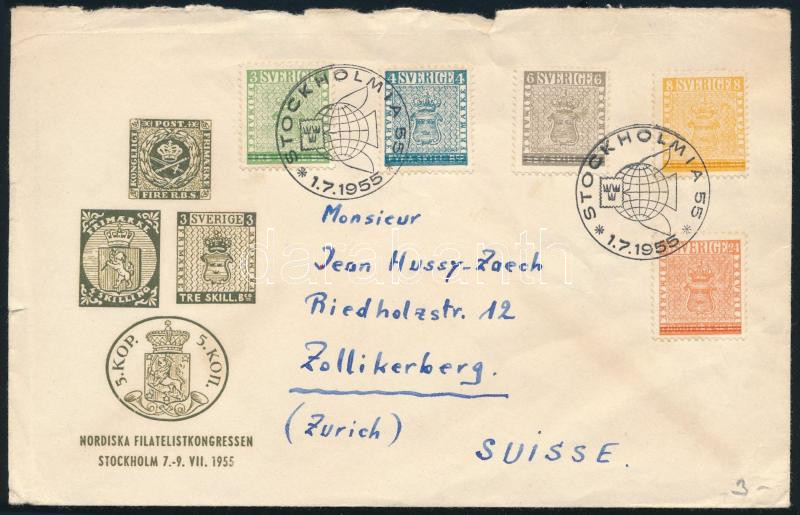 KONGELIGT POST FRIMÆRKE
FIRE R.B.S.
FRIMÆRKE
4 SKILLING
3 SVERIGE 3
TRE SKILL. Bco
5. KOP. 5. КОП.
NORDISKA FILATELISTKONGRESSEN
STOCKHOLM 7.-9. VII. 1955
3 SVERIGE
4 SVERIGE 4
6 SVERIGE 6
8 SVERIGE 8
SVERIGE 24
STOCKHOLMIA 55
* 1.7.1955 *
STOCKHOLMIA 55
* 1.7.1955 *
Monsieur
Jean Hussy-Zaech
Riedholzstr. 12
Zollikerberg.
(Zurich)
SUISSE.
-3-
darabanth